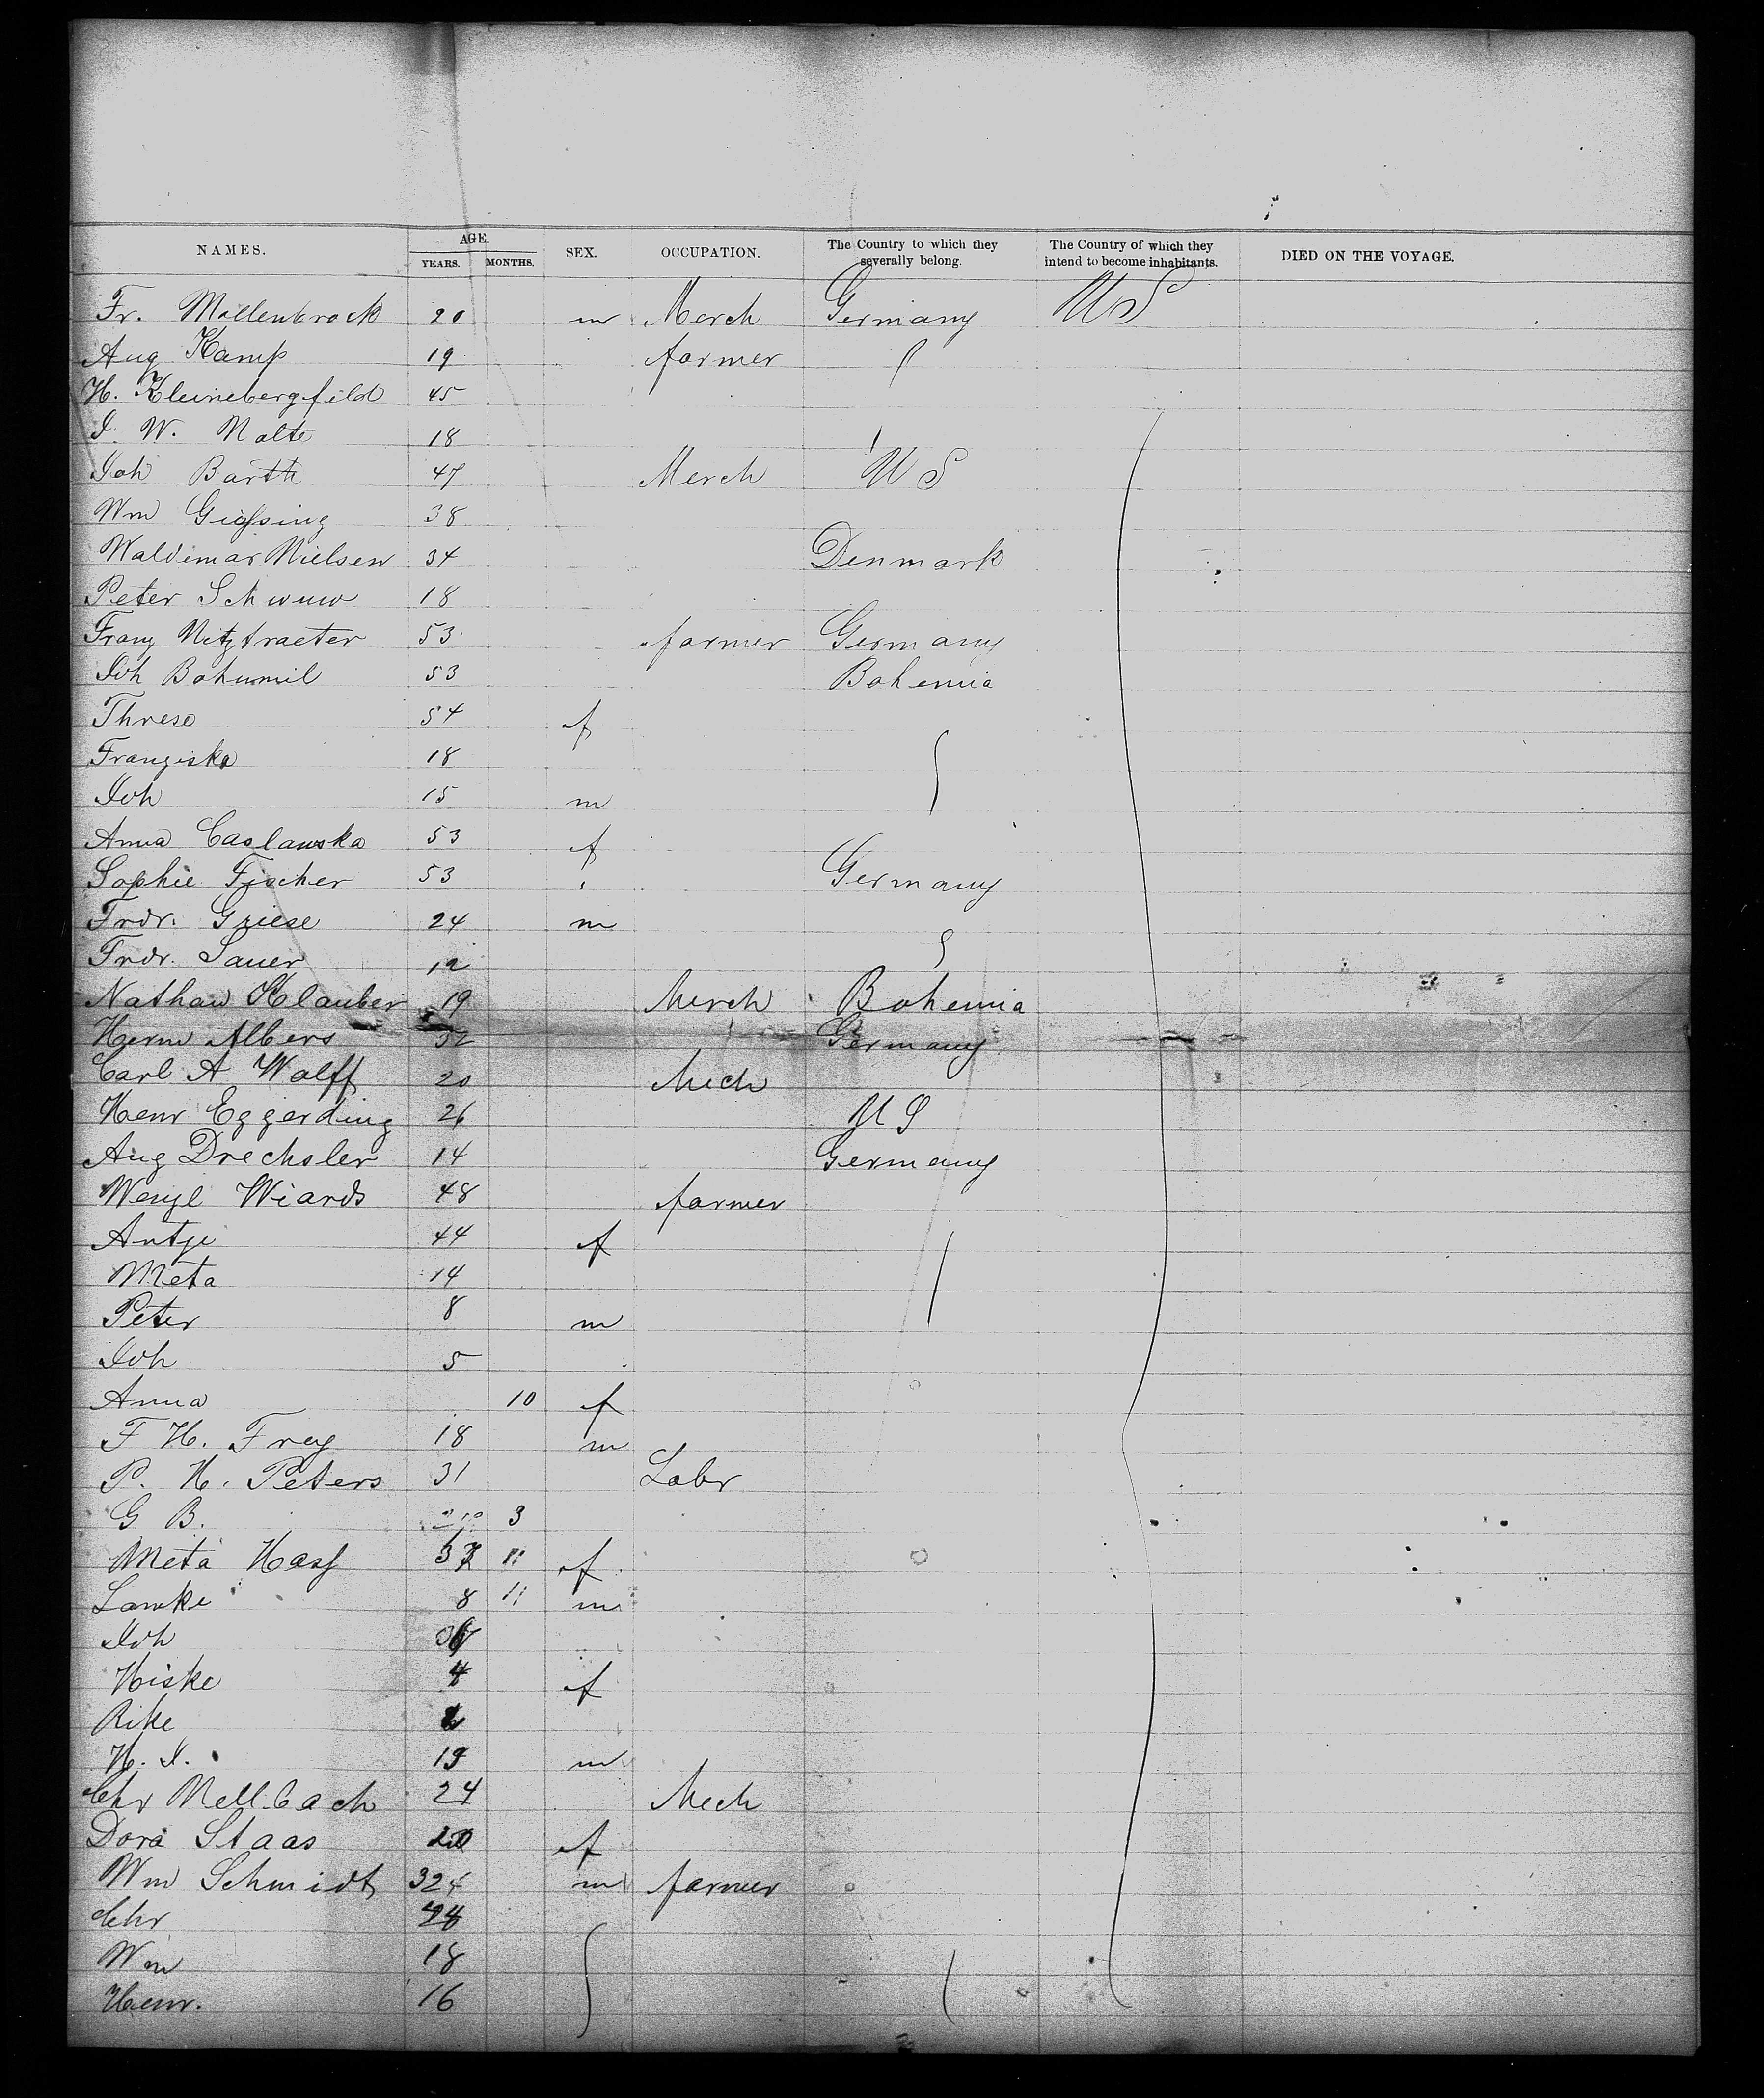 NAMES. AGE. SEX. OCCUPATION. The Country to which they severally belong. The Country of which they intend to become inhabitants. DIED ON THE VOYAGE.
YEARS. MONTHS.
Fr. Mollenbrock 20 m Merch Germany U S
Aug Kamp 19 farmer
H. Kleinebergfild 45
I. W. Nolte 18
Joh Barth 47 Merch U S
Wm 38
Waldimar Nielsen 34 Denmark
Peter 18
Franz 53 farmer Germany
Joh Bohumil 53 Bohemia
Threse 54 f
Franziska 18
Joh 15 m
Anna Caslawska 53 f
Sophie Fischer 53 Germany
Frdr. Griese 24 m
Frdr. Sauer 12
Nathan Klauber 19 Merch Bohemia
Herm Albers 32 Germany
Carl A Wolff 20 Mech
Henr Eggerding 26 U S
Aug Drechsler 14 Germany
Wenzl Wiards 48 farmer
Antje 44 f
Meta 14
Peter 8 m
Joh 5
Anna 10 f
F H. Frey 18 m
P. H. Peters 31 Labr
G B. 3
Meta 11 f
Lamke 8 11 m
Joh
Hiske 4 f
Rike
H. I. 19 m
Chr Mellbach 24 Mech
Dora Staas f
Wm Schmidt m farmer
Chr
Wm 18
Henr. 16